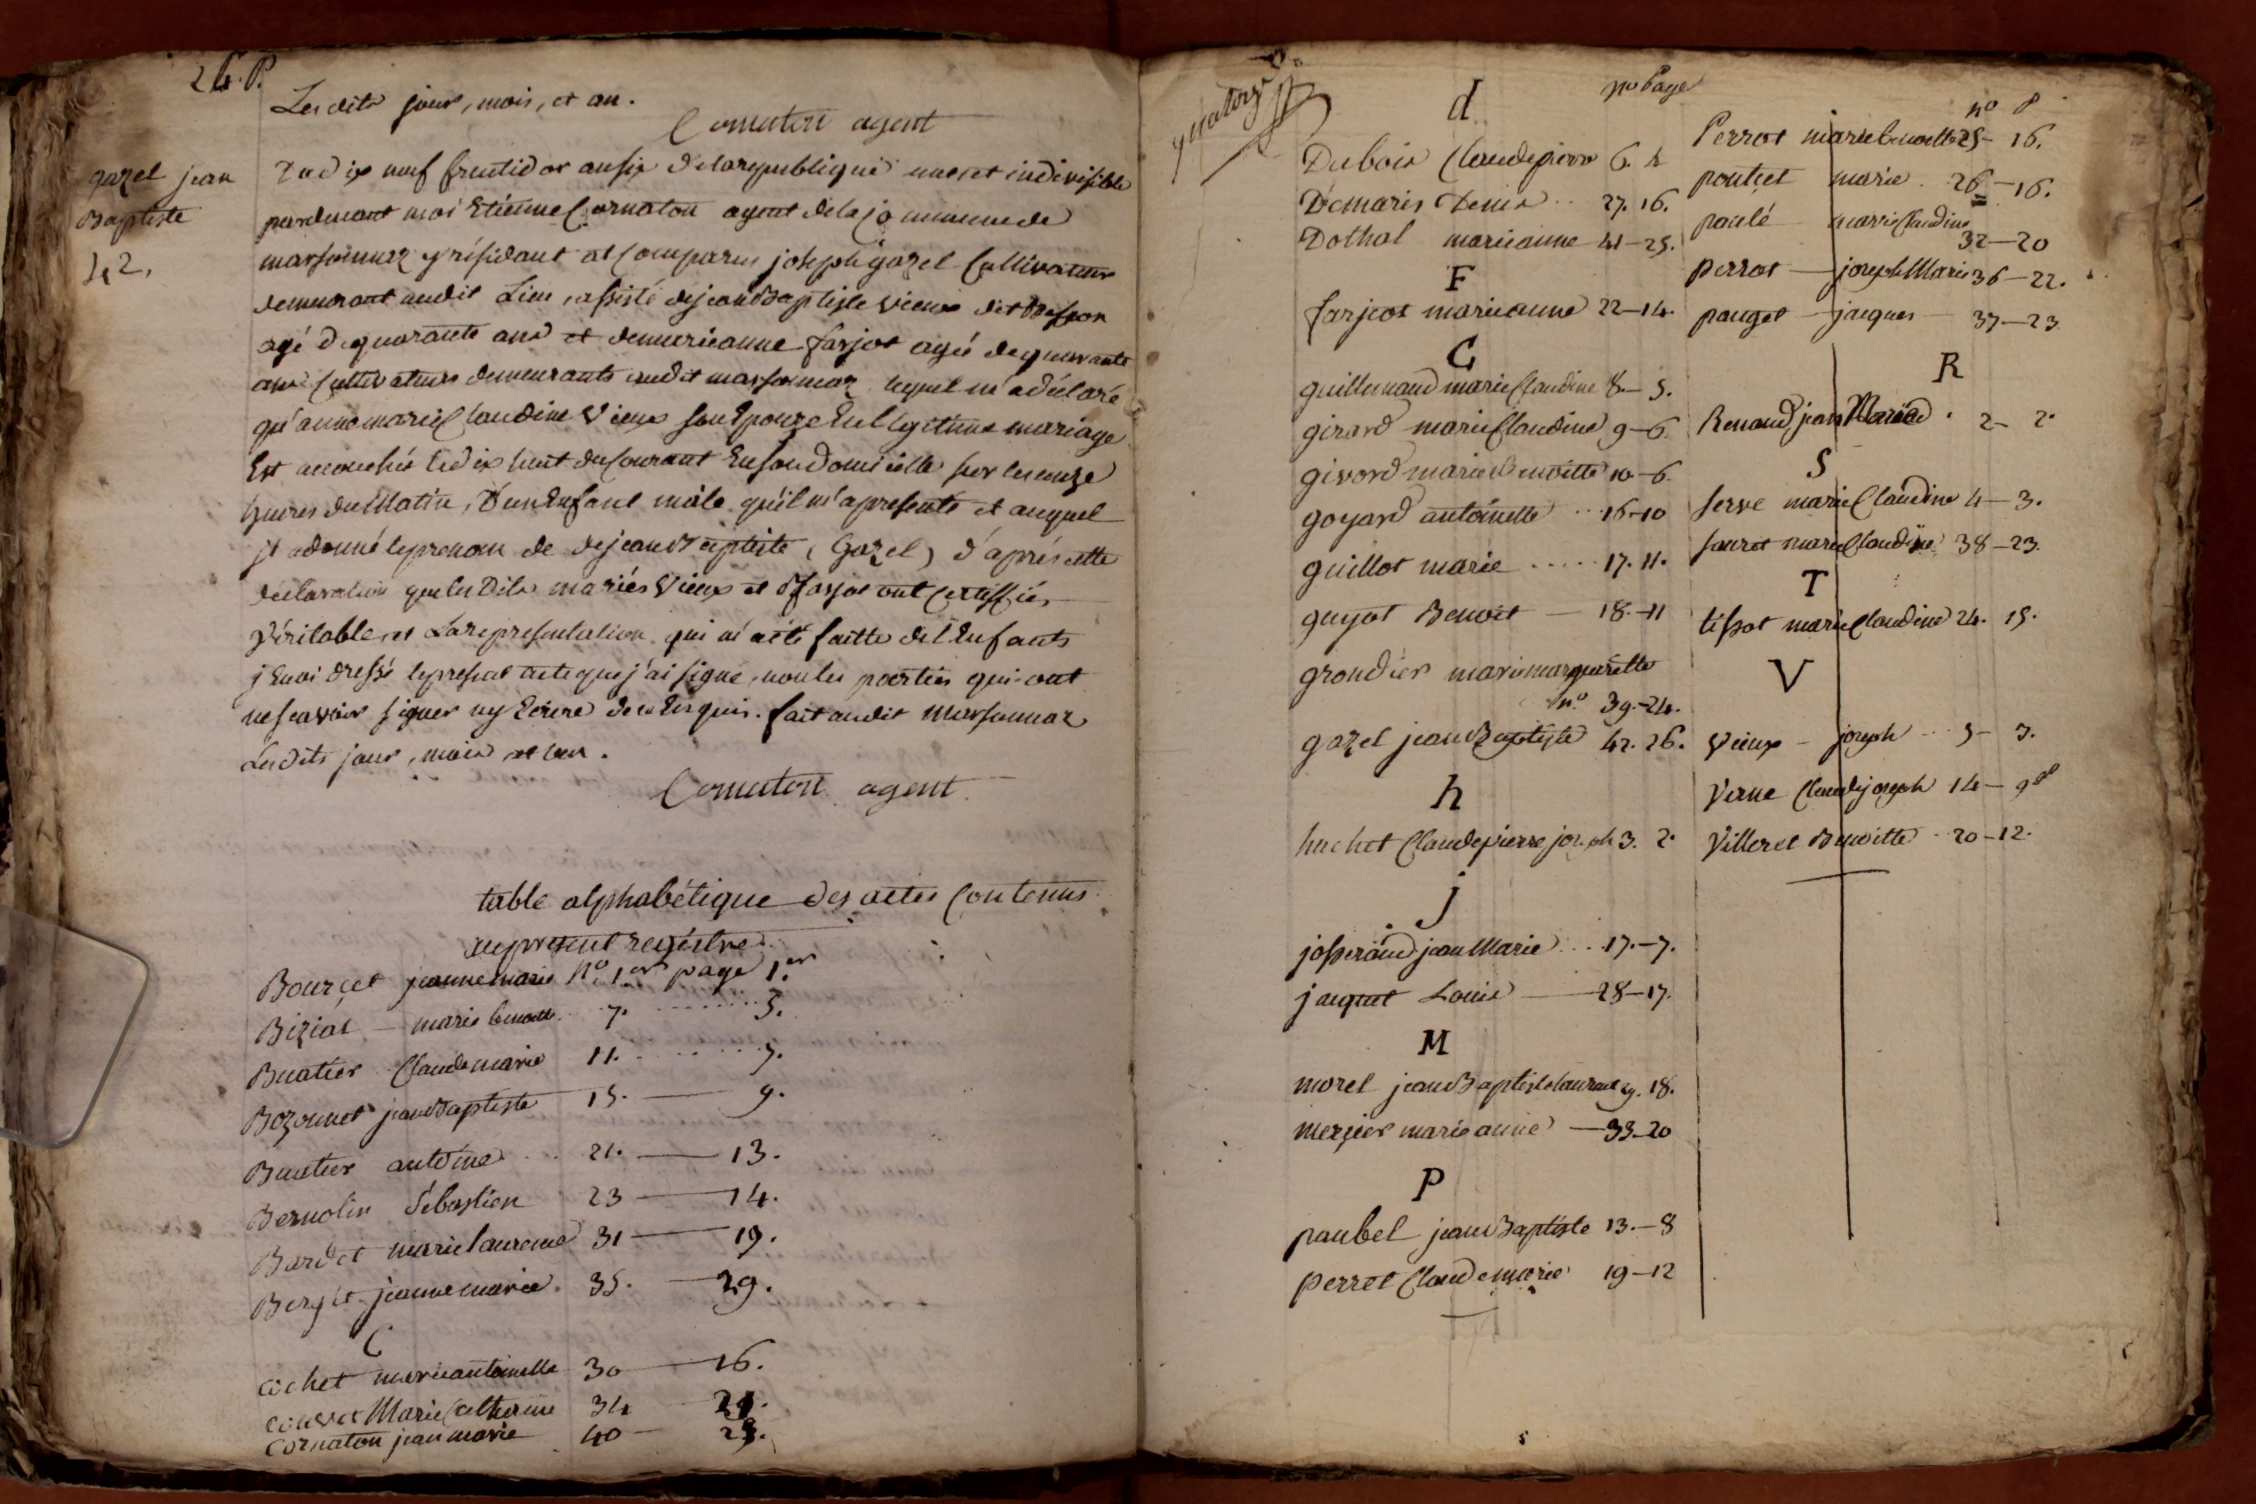 26. P.
Les dits jour, mois, et an.
Cornaton agent
gazel jean
Baptiste
42.
Le dix neuf fructidor an six de la republique une et indivisible
pardevant moi Etienne Cornaton agent de la commune de
marsonnaz y résidant at comparus joseph gazel Cultivateur
demeurant audit Lieu, assisté de jean Baptiste vieux dit
agé de quarante ans et de marieanne farjot agée de quarante
ans Cultivateurs demeurants audit marsonnaz lequel m'a déclaré
qu'anne marie Claudine Vieux son Epouze En légitime mariage
Est accouchée Le dix huit du Courant En son domicille sur les onze
heures du Matin, D'un Enfant mâle qu'il m'a presenté et auquel
il a donné le prenom de de jean Baptiste (Gazel) d'après cette
déclaration que les Dits mariés Vieux et Farjot ont Certiffiés
Véritable et La representation qui m'a été faitte de l'Enfants
j'En ai dressé le present acte que j'ai signé, non les parties qui ont
ne scavoir signer ny Ecrire de ce Enquis. fait audit Marsonnaz
Les dits jour, mois et an.
Cornaton agent
table alphabétique des actes Contenus
au present régistre
Bourcet jeanne marie N.º 1.er page 1.er
Biziat — marie benoitte 7. 5.
Buatier Claude marie 11. 7.
Bozonnet jean Baptiste 15. — 9.
Buatier antoine 21. — 13.
Bernolin Sébastien 23 — 14.
Bardet marie laurence 31 — 19.
Berget jeanne marie. 35. — 29.
C
cochet marie antoinette 30 — 16.
couvet Marie Catherine 34 21.
Cornaton jean marie 40 — 25.
quatorze
nº Page
d
Dubois Claude pierre 6. 4
Démaris Denis 27. 16.
Dothal marieanne 41 — 25.
F
farjeot marieanne 22 — 14.
G
guillemaud marie Claudine 8. — 5.
girard marie Claudine 9 — 6.
givord marie benoitte 10 — 6.
goyard antoinette 16 — 10
guillot marie 17. 11.
guyot Benoit — 18. — 11
grondier marie marguerette
n.º 39. — 24.
gazel jean Baptiste 42. 26.
h
huchet Claude pierre joseph 3. 2.
j
josserand jean Marie 17. — 7.
jaquet Louis — 28 — 17.
M
morel jean Baptiste laurent 29. 18.
mercier marie anne — 33 — 20
P
paubel jean Baptiste 13. — 8
perret Claude marie 19 — 12
nº P
Perrot marie benoitte 25 — 16.
pontcet marie. 26 — 16.
poulé marie Claudine
32 — 20
perrot — joseph Marie 36 — 22.
pauget — jaques — 37 — 23
R
Renaud jean Marie 2 — 2.
S
serve marie Claudine 4 — 3.
souret marie Claudine 38 — 23.
T
tissot marie Claudine 24. 15.
V
Vieux — joseph 5 — 3.
Verne Claude joseph 14 — 9
Villeret Benoitte 20 — 12.